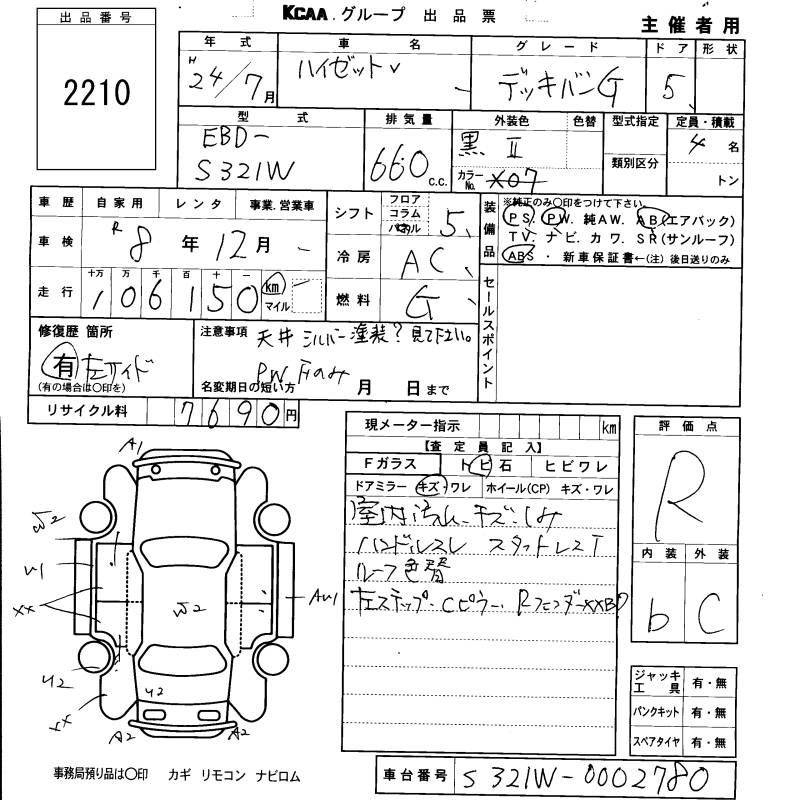 出品番号
2210
KCAA.グループ 出品票
主催者用
年式 車名 グレード ドア 形状
H 24/7月 ハイゼット デッキバンG 5
型式 排気量 外装色 色替 型式指定 定員・積載
EBD-
S321W 660 C.C. 黒Ⅱ 類別区分 4名
カラーNo. X07 トン
車歴 自家用 レンタ 事業.営業車
車検 R 8年12月
走行 十万 万 千 百 十 一
106150 km マイル
シフト フロア コラム パネル 5
冷房 AC
燃料 G
装備品 ※純正のみ〇印をつけて下さい。
PS. PW. 純AW. AB(エアバック)
TV. ナビ. カワ. SR(サンルーフ)
ABS ・ 新車保証書←(注) 後日送りのみ
セールスポイント
修復歴 箇所
有 左サイド
(有の場合は〇印を)
注意事項 天井 シルバー塗装?見て下さい。
PW Fのみ
名変期日の短い方 月 日まで
リサイクル料 7690円
現メーター指示 km
【査定員記入】
Fガラス トビ石 ヒビワレ
ドアミラー キズ・ワレ ホイール(CP) キズ・ワレ
室内汚れ、キズ、しみ
ハンドルスレ スタットレスT
ルーフ色替
左ステップ・Cピラー、RフェンダーXXBP
評価点
R
内装 外装
b C
ジャッキ工具 有・無
パンクキット 有・無
スペアタイヤ 有・無
A1
W2
U1
XX
W2
AU1
U2
U2
XX
A2
A2
事務局預り品は〇印 カギ リモコン ナビロム
車台番号 S321W-0002780